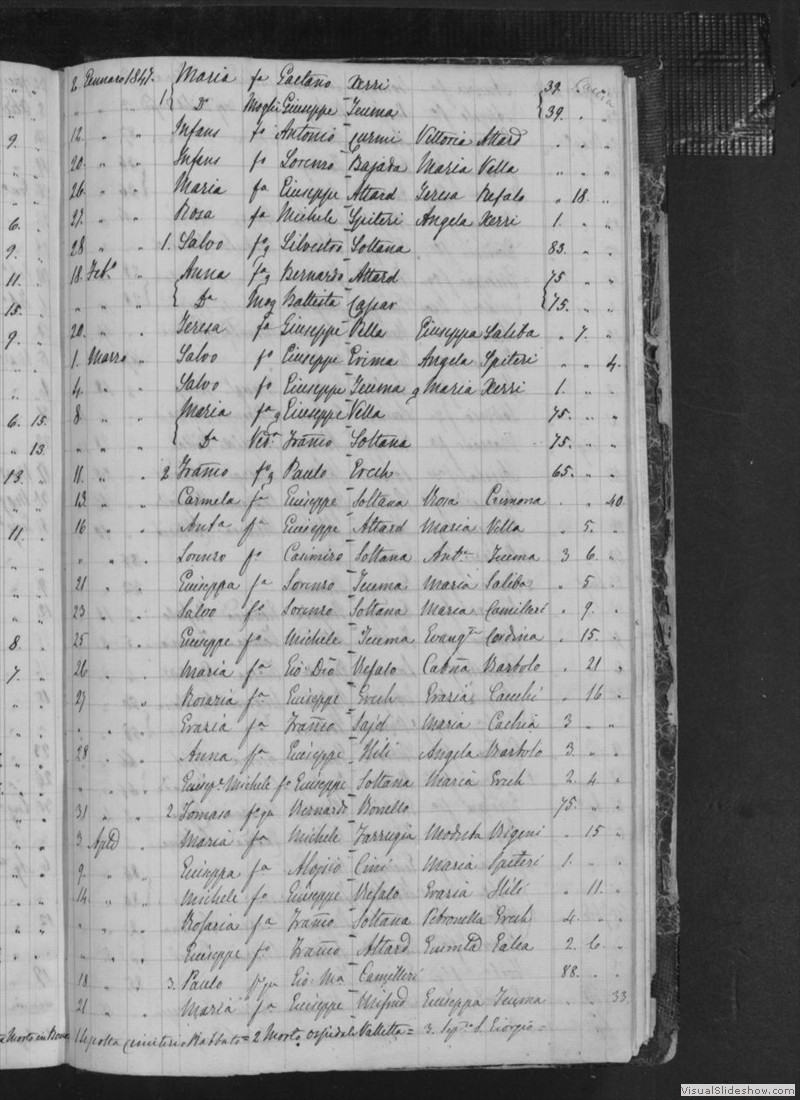 2 Gennaro 1847. Maria fa Gaetano Xerri 39. " "
1 { Da Moglie Giuseppe Teuma { 39. "
9. 12 " " Infans fo Antonio Curmi Vittoria Attard " " "
20 " " Infans fo Lorenzo Bajada Maria Vella " " "
26 " " Maria fa Giuseppe Attard Teresa Refalo " 18 "
6. 27 " " Rosa fa Michele Spiteri Angela Xerri 1. " "
9. 28 " " 1. Salvo fg Silvestro Soltana 83. " "
11. 18 Feb. " Anna fg Bernardo Attard 75 " "
15. " " { Da Mog Battista { 75. " "
9. 20 " " Teresa fa Giuseppe Vella Giuseppa Saliba " 7. "
1. Marzo " Salvo fo Giuseppe Grima Angela Spiteri " " 4.
4. " " Salvo fo Giuseppe Teuma g Maria Xerri 1. " "
6. 15. 8 " " Maria fa g Giuseppe Vella 75. " "
" 13. { Da Veda Franco Soltana 75. " "
13. 11. " " 2 Franco fg Paulo Grech 65. " "
13. " " Carmela fa Giuseppe Soltana Rosa Cremona " " 40
11. 16 " " Anta fa Giuseppe Attard Maria Vella " 5. "
" " " Lorenzo fo Casimiro Soltana Anta Teuma 3 6. "
21 " " Giuseppa fa Lorenzo Teuma Maria Saliba " 5 "
23 " " Salvo fo Lorenzo Soltana Maria Camilleri " 9. "
8. 25 " " Giuseppe fo Michele Teuma Evangta Cordina " 15. "
7. 26 " " Maria fa Gio Dio Refalo Bartolo " 21 "
27 " " Rosaria fa Giuseppe Grech Grazia " 16 "
" " " Grazia fa Franco Sajd Maria Cachia 3 " "
28 " " Anna fa Giuseppe Hili Angela Bartolo 3. " "
" " Giuspe Michele fo Giuseppe Soltana Maria Grech 2. 4 "
31 " " 2. Tomaso Bernardo Bonello 75. " "
3. " Maria fa Michele Farrugia Modesta " 15 "
9. " " Giuseppa fa Aloisio Cini Maria Spiteri 1. " "
14 " " Michele fo Giuseppe Refalo Grazia Hili " 11. "
" " " Rosaria fa Franco Soltana Petronella Grech 4. " "
" " " Giuseppe fo Franco Attard Galea 2. 6. "
18 " " 3. Paulo Gio Ma Camilleri 88. " "
21 " " Maria fa Giuseppe Mifsud Giuseppa Teuma " " 33.
1 cimiterio Rabbato = 2 Morto ospidale Valletta = 3. S. Giorgio =
VisualSlideshow.com